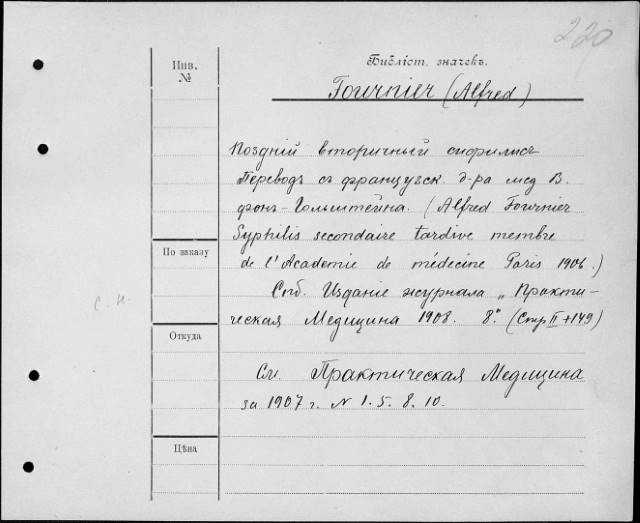 220
Инв.
№
Библіот. значекъ.
Fournier (Alfred)
Поздній вторичный сифилисъ
Переводъ съ французск. д-ра мед В.
фонъ-Гольштейна. (Alfred Fournier
Syphilis secondaire tardive membre
de l'Academie de médecine Paris 1906.)
По заказу
с. н.
Спб. Изданіе журнала „Практи-
ческая Медицина 1908. 8º (Стр II+149)
Откуда
См. Практическая Медицина
за 1907 г. N 1. 5. 8. 10.
Цѣна